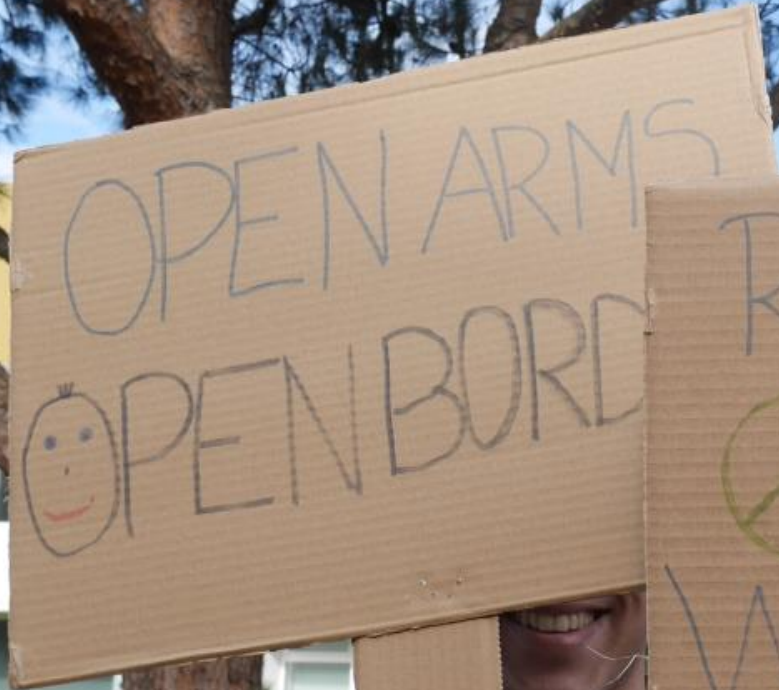 OPEN ARMS
OPEN BORD
R
W